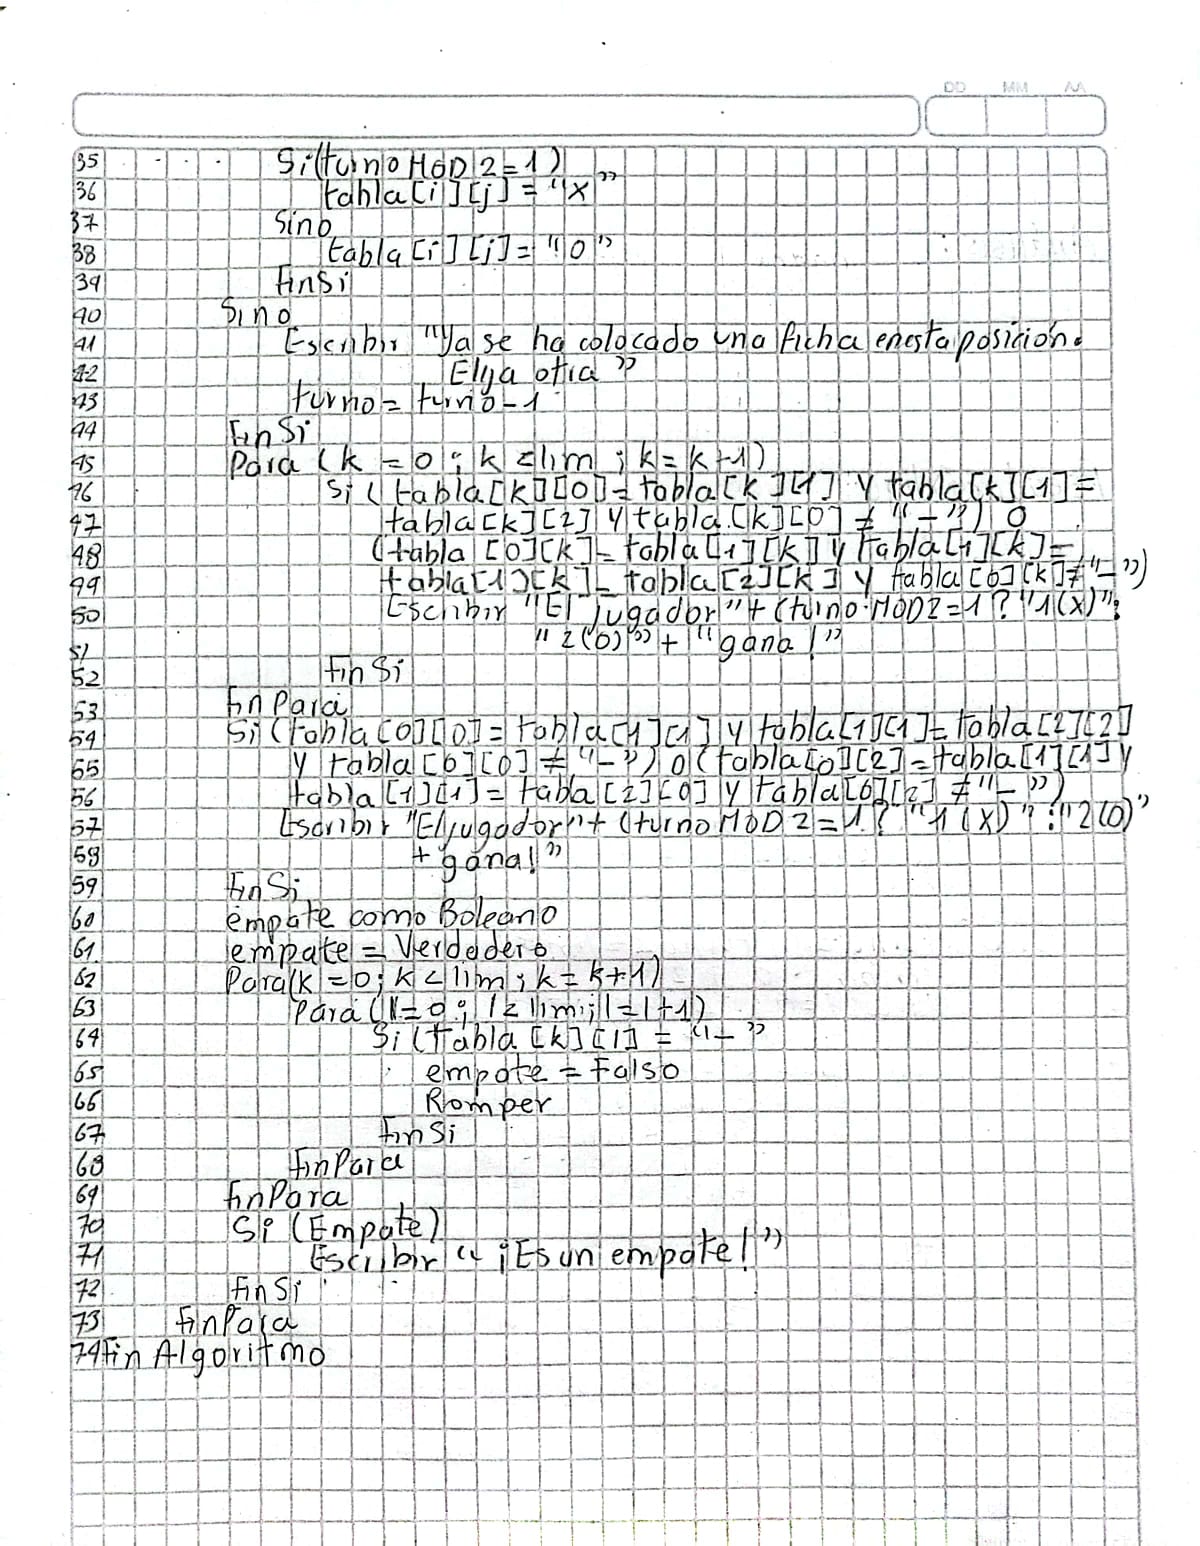 DD MM AA
35 Si(turno MOD 2 = 1)
36 tabla[i][j] = "X"
37 Sino
38 tabla[i][j] = "0"
39 FinSi
40 Sino
41 Escribir "Ya se ha colocado una ficha en esta posición.
42 Elija otra"
43 turno = turno - 1
44 FinSi
45 Para (k = 0 ; k < lim ; k = k+1)
46 Si (tabla[k][0] = tabla[k][1] Y tabla[k][1] =
47 tabla[k][2] Y tabla[k][0] ≠ "-") O
48 (tabla [0][k] = tabla[1][k] y tabla[1][k] =
49 tabla[1][k] = tabla[2][k] Y tabla[0][k] ≠ "-")
50 Escribir "El jugador" + (turno MOD 2 = 1 ? "1(X)":
51 "2(0)") + "gana!"
52 Fin Si
53 Fin Para
54 Si (tabla[0][0] = tabla[1][1] y tabla[1][1] = tabla[2][2]
55 y tabla[0][0] ≠ "-") O (tabla[0][2] = tabla[1][1] y
56 tabla[1][1] = taba[2][0] y tabla[0][2] ≠ "-")
57 Escribir "El jugador" + (turno MOD 2 = 1 ? "1(X)" : "2(0)"
58 + gana!"
59 Fin Si
60 empate como Boleano
61 empate = Verdadero
62 Para(k = 0; k < lim ; k = k+1)
63 Para(l = 0; l < lim; l = l+1)
64 Si (tabla [k][l] = "-"
65 empate = Falso
66 Romper
67 Fin Si
68 FinPara
69 FinPara
70 Si (Empate)
71 Escribir "¡Es un empate!"
72 Fin Si
73 FinPara
74 Fin Algoritmo